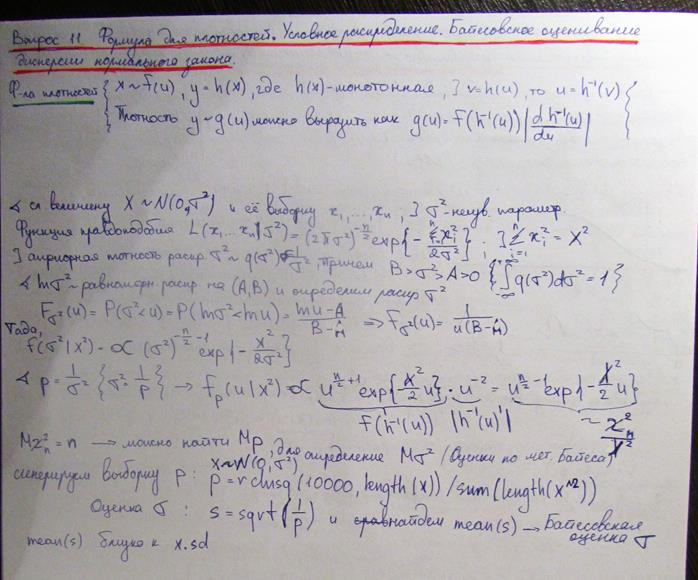 Вопрос 11 Формула для плотностей. Условное распределение. Байесовское оценивание
дисперсии нормального закона.
Ф-ла плотностей { x ~ f(u), y = h(x), где h(x)-монотонная, ] v = h(u), то u = h⁻¹(v) }
Плотность y ~ g(u) можно выразить как g(u) = f(h⁻¹(u)) |d h⁻¹(u)/du|
∢ сл величину X ~ N(0, σ²) и её выборку x₁,...,xₙ ; ] σ²-неизв. параметр.
Функция правдоподобия L(x₁...xₙ|σ²) = (2πσ²)^(-n/2) exp{-Σxᵢ²/2σ²} ; ] Σxᵢ² = X²
] априорная плотность распр σ² ~ q(σ²) , причем B > σ² > A > 0 { ∫q(σ²)dσ² = 1 }
∢ lnσ² ~ равномерн. распр на (A,B) и определим распр σ²
F_σ²(u) = P(σ² < u) = P(lnσ² < lnu) = (lnu - A)/(B - A) ⇒ f_σ²(u) = 1/(u(B-A))
Тогда,
f(σ²|X²) - ∝ (σ²)^(-n/2 - 1) exp{-X²/2σ²}
∢ p = 1/σ² {σ² = 1/p} → f_p(u|X²) = ∝ u^(n/2+1) exp{X²/2 u} · u⁻² = u^(n/2-1) exp{-X²/2 u}
f(h⁻¹(u)) |(h⁻¹(u))'| ~ χₙ²/X²
Mχₙ² = n → можно найти Mp, для определение Mσ² (Оценки по мет. Байеса)
x~N(0,σ²)
сгенерируем выборку p : p = rchisq(10000, length(x)) / sum(length(x^2))
Оценка σ : s = sqrt(1/p) и найдем mean(s) → Байесовская
оценка σ
mean(s) близко к x.sd